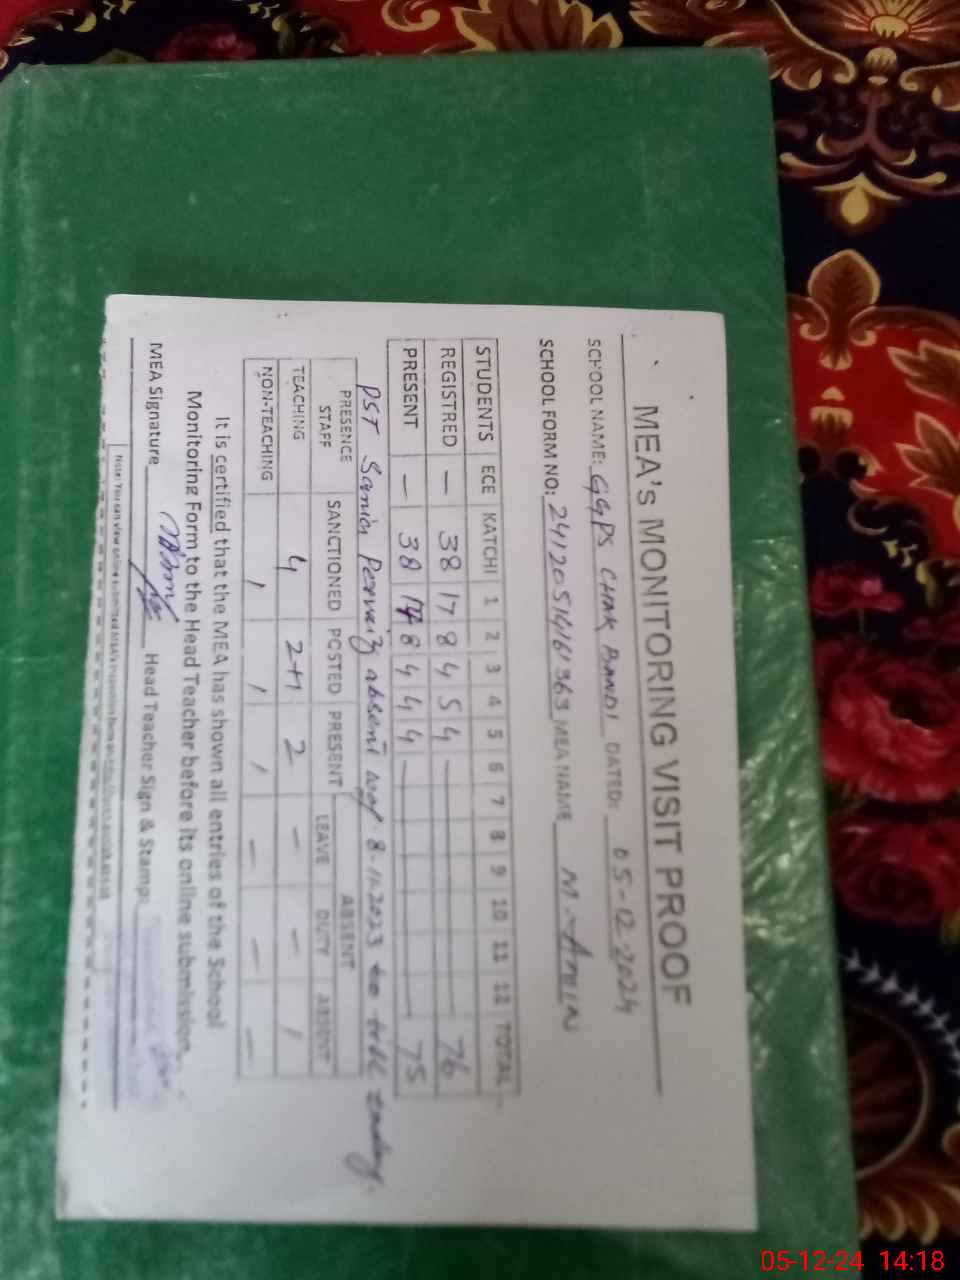 MEA'S MONITORING VISIT PROOF
SCHOOL NAME: GGPS CHAK BANDI DATED: 05-12-2024
SCHOOL FORM NO: 24120514161363 MEA NAME M. Amin
STUDENTS ECE KATCHI 1 2 3 4 5 6 7 8 9 10 11 12 TOTAL
REGISTRED — 38 17 8 4 5 4 — 76
PRESENT — 38 17 8 4 4 4 — 75
PST Pervaiz absent wef 8-11-2023 to till today.
PRESENCE STAFF SANCTIONED POSTED PRESENT ABSENT
LEAVE DUTY ABSENT
TEACHING 4 2+1 2 – – 1
NON-TEACHING 1 1 1 – – –
It is certified that the MEA has shown all entries of the School
Monitoring Form to the Head Teacher before its online submission.
MEA Signature Head Teacher Sign & Stamp:
Note: You can view online submitted MEA's
05-12-24 14:18